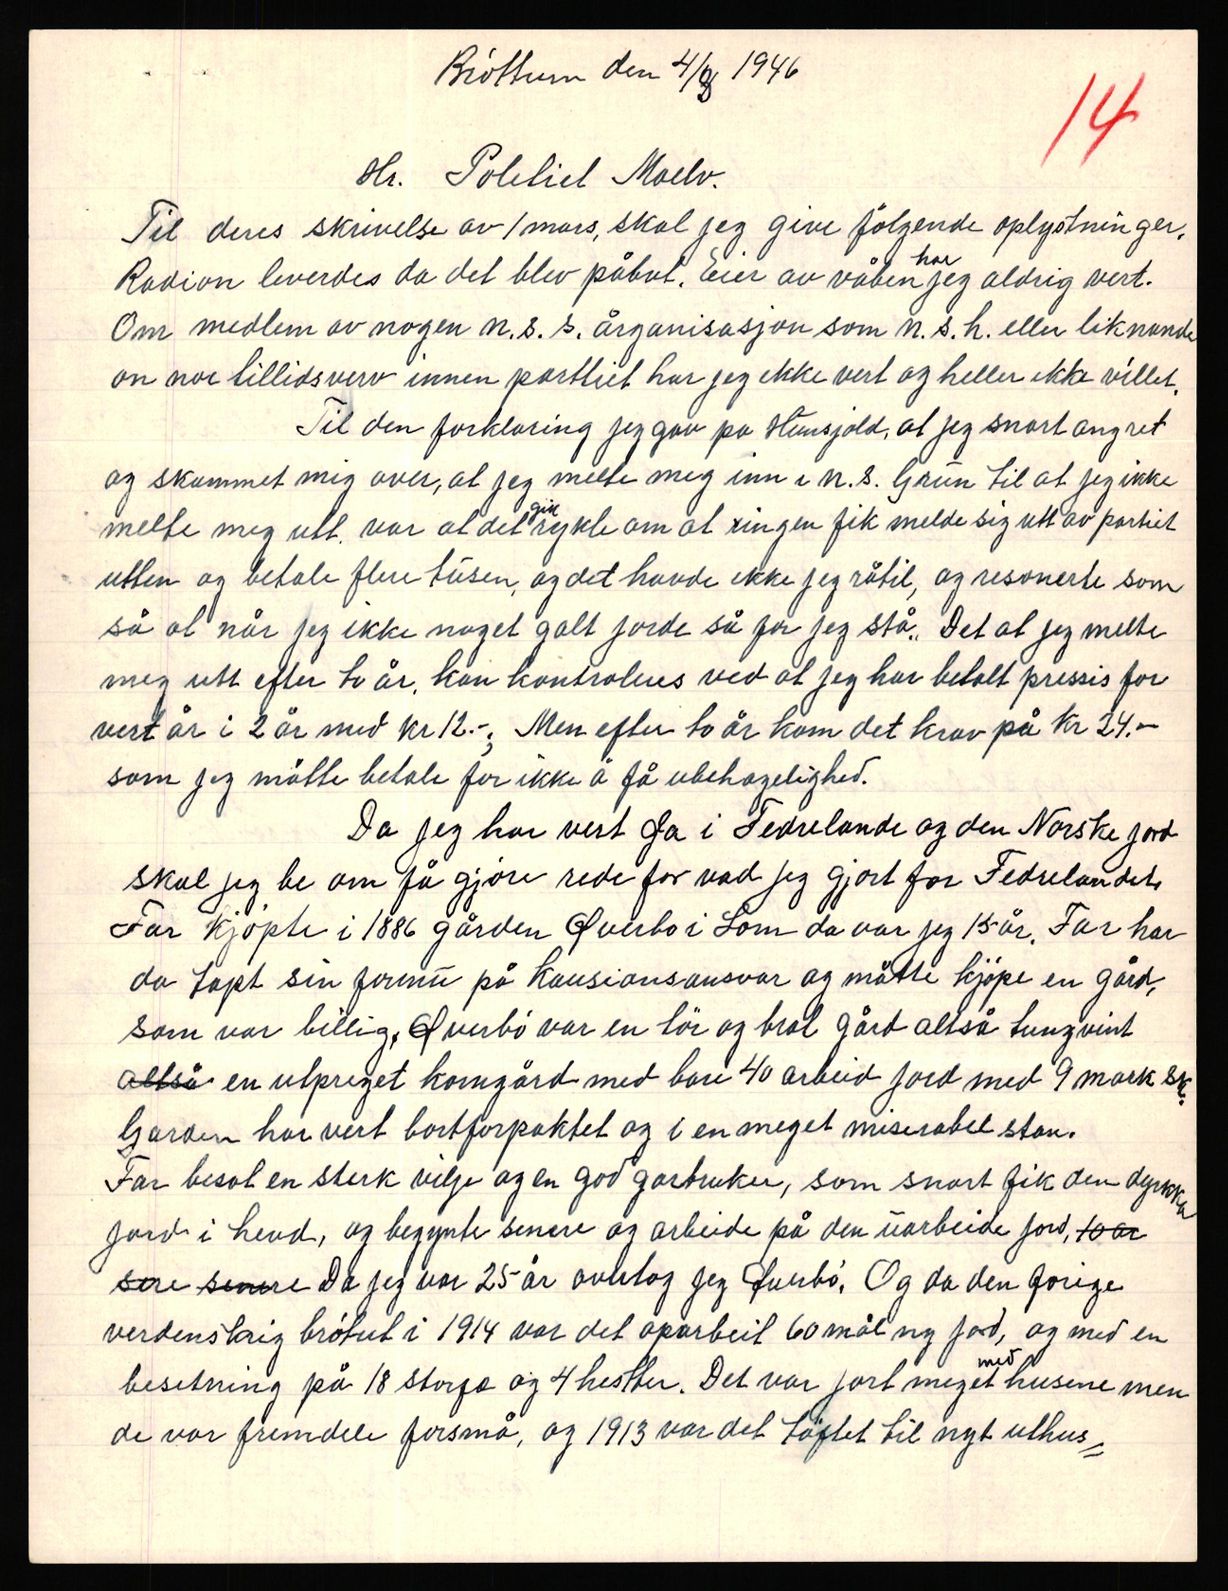 Bröttum den 4/3 1946
14
Hr. Politiet Moelv.
Til deres skrivelse av 1 mars, skal jeg give følgende oplystninger.
Radion leverdes da det blev påbut. Eier av våben har jeg aldrig vert.
Om medlem av nogen N.S.S. årganisasjon som N.S.H. eller liknande
on noe tillidsverv innen parttiet har jeg ikke vert og heller ikke villet.
Til den forklaring jeg gav på, at jeg snart angret
og skammet mig over, at jeg melte meg inn i N.S. Grün til at jeg ikke
melte meg utt. var at det gik rykte om at ingen fik melde sig utt av partiet
utten og betale flere tusen, og det havde ikke jeg råtil, og resonerte som
så at når jeg ikke noget galt jorde så for jeg stå. Det at jeg melte
meg utt efter to år, kan kontroleres ved at jeg har betalt pressis for
vert år i 2 år med kr 12.-; Men efter to år kom det krav på kr 24.-
som jeg måtte betale for ikke å få ubehagelighed.
Da jeg har vert Ja i Fedrelande og den Norske jord
skal jeg be om få gjöre rede for vad jeg gjort for Fedrelandet.
Far kjöpte i 1886 gården Øverbo i Lom da var jeg 15 år. Far har
da tapt sin formü på kausionsansvar og måtte kjöpe en gård,
som var billig. Øverbö var en tör og brat gård altså tungvint
altså en utpreget korngård med bare 40 arbeid jord med 9 mark sk.
Garden har vert bortforpaktet og i en meget miserabel stan.
Far besat en sterk vilje og en god garbruker, som snart fik den dyrkka
jord i hevd, og begynte senere og arbeide på den üarbeide jord, to år
sere senere Da jeg var 25 år overtog jeg Øverbö. Og da den forige
verdenskrig bröt ut i 1914 var det oparbeit 60 mål ny jord, og med en
besetning på 18 storfe og 4 hestter. Det var jort meget med husene men
de var fremdele forsmå, og 1913 var det töftet til nyt uthus